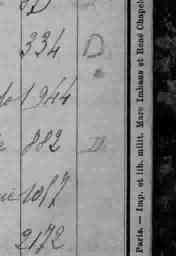 334 D
1944
882 D
1057
2172
Paris. — Imp. et lib. milit. Marc Imhaus et René Chapel